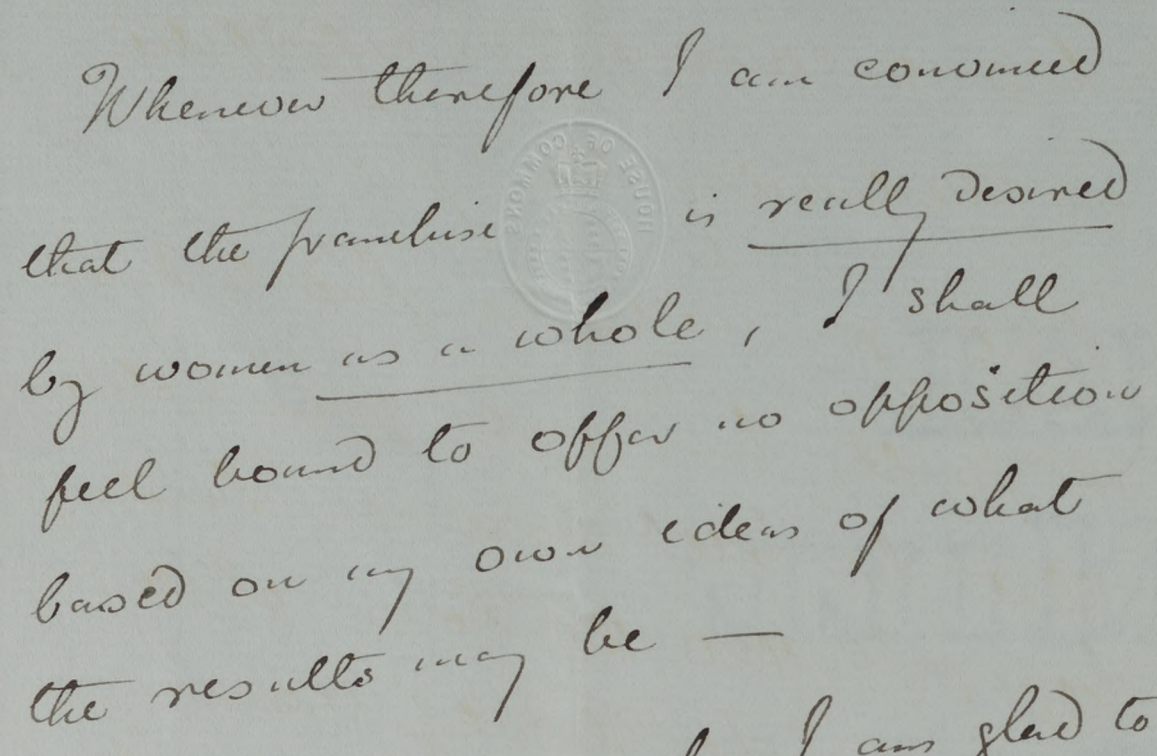 Whenever therefore I am convinced
HOUSE OF COMMONS
that the franchise is really desired
by women as a whole, I shall
feel bound to offer no opposition
based on my own ideas of what
the results may be —
I am glad to